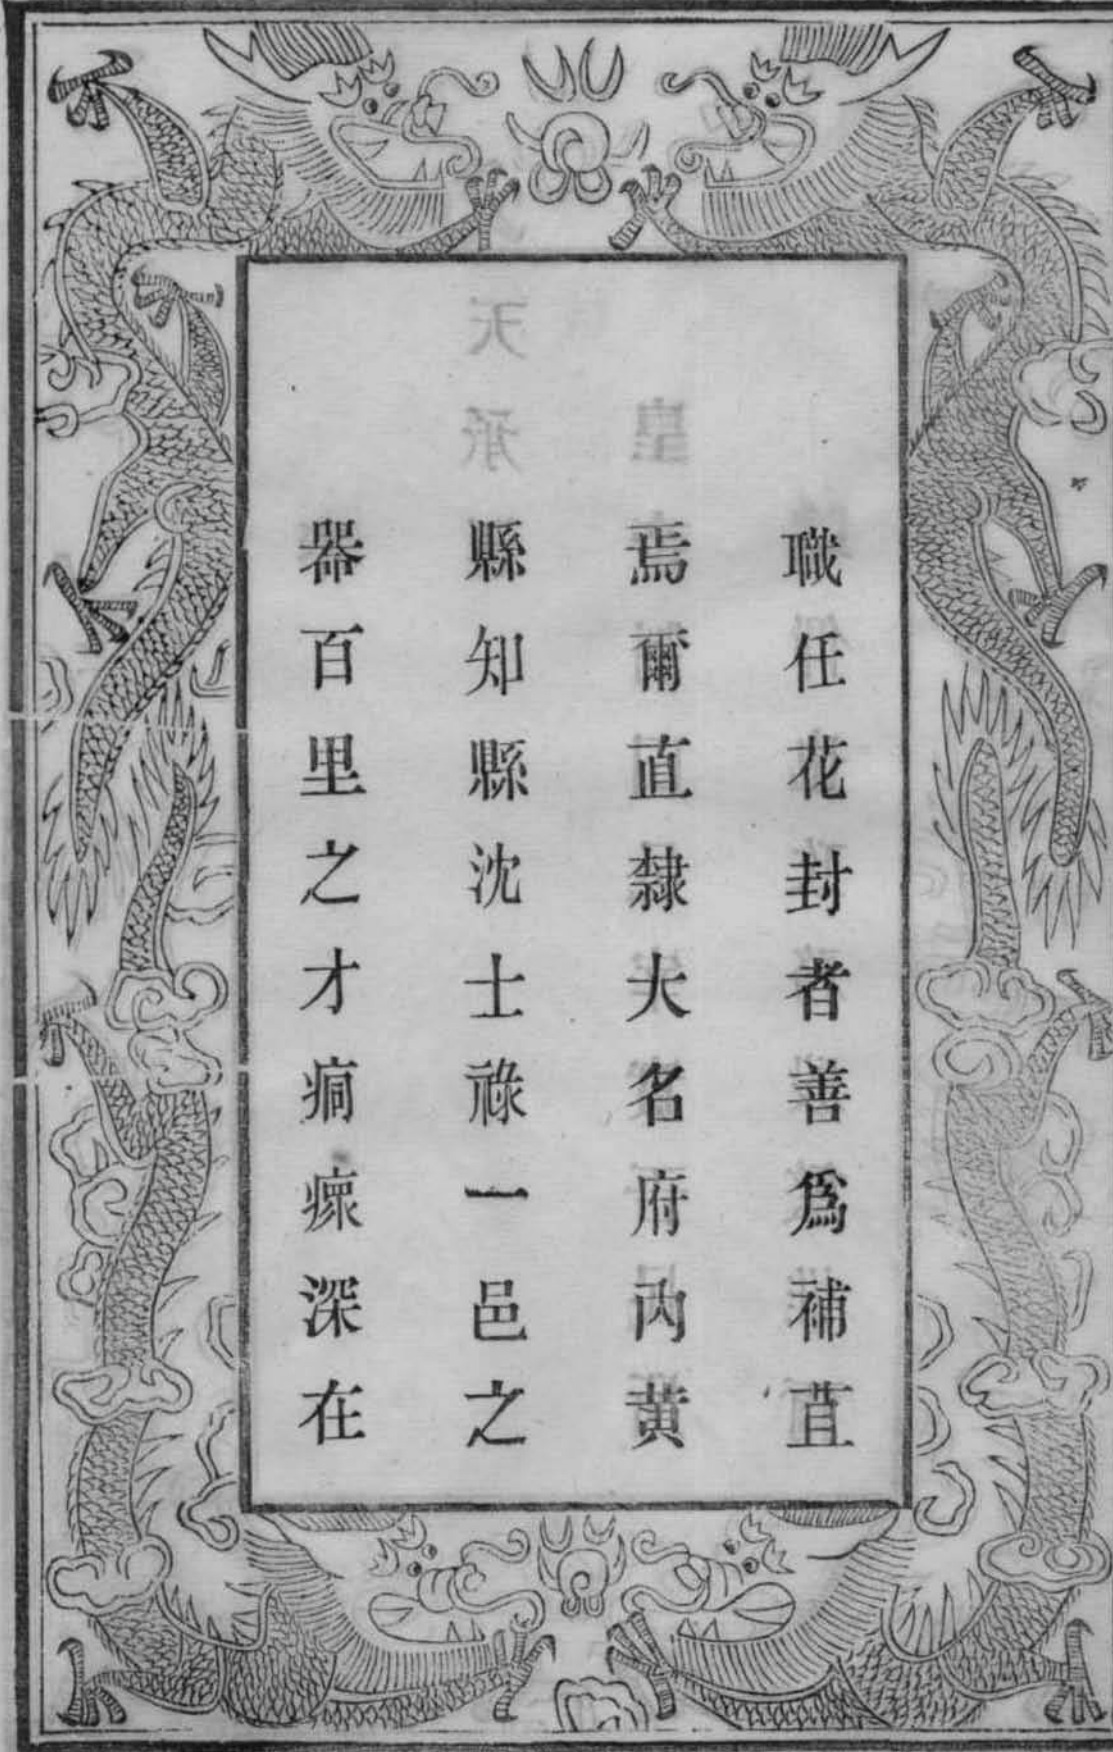 職任花封者善爲補苴
焉爾直隸大名府内黄
縣知縣沈士祿一邑之
器百里之才痌瘝深在